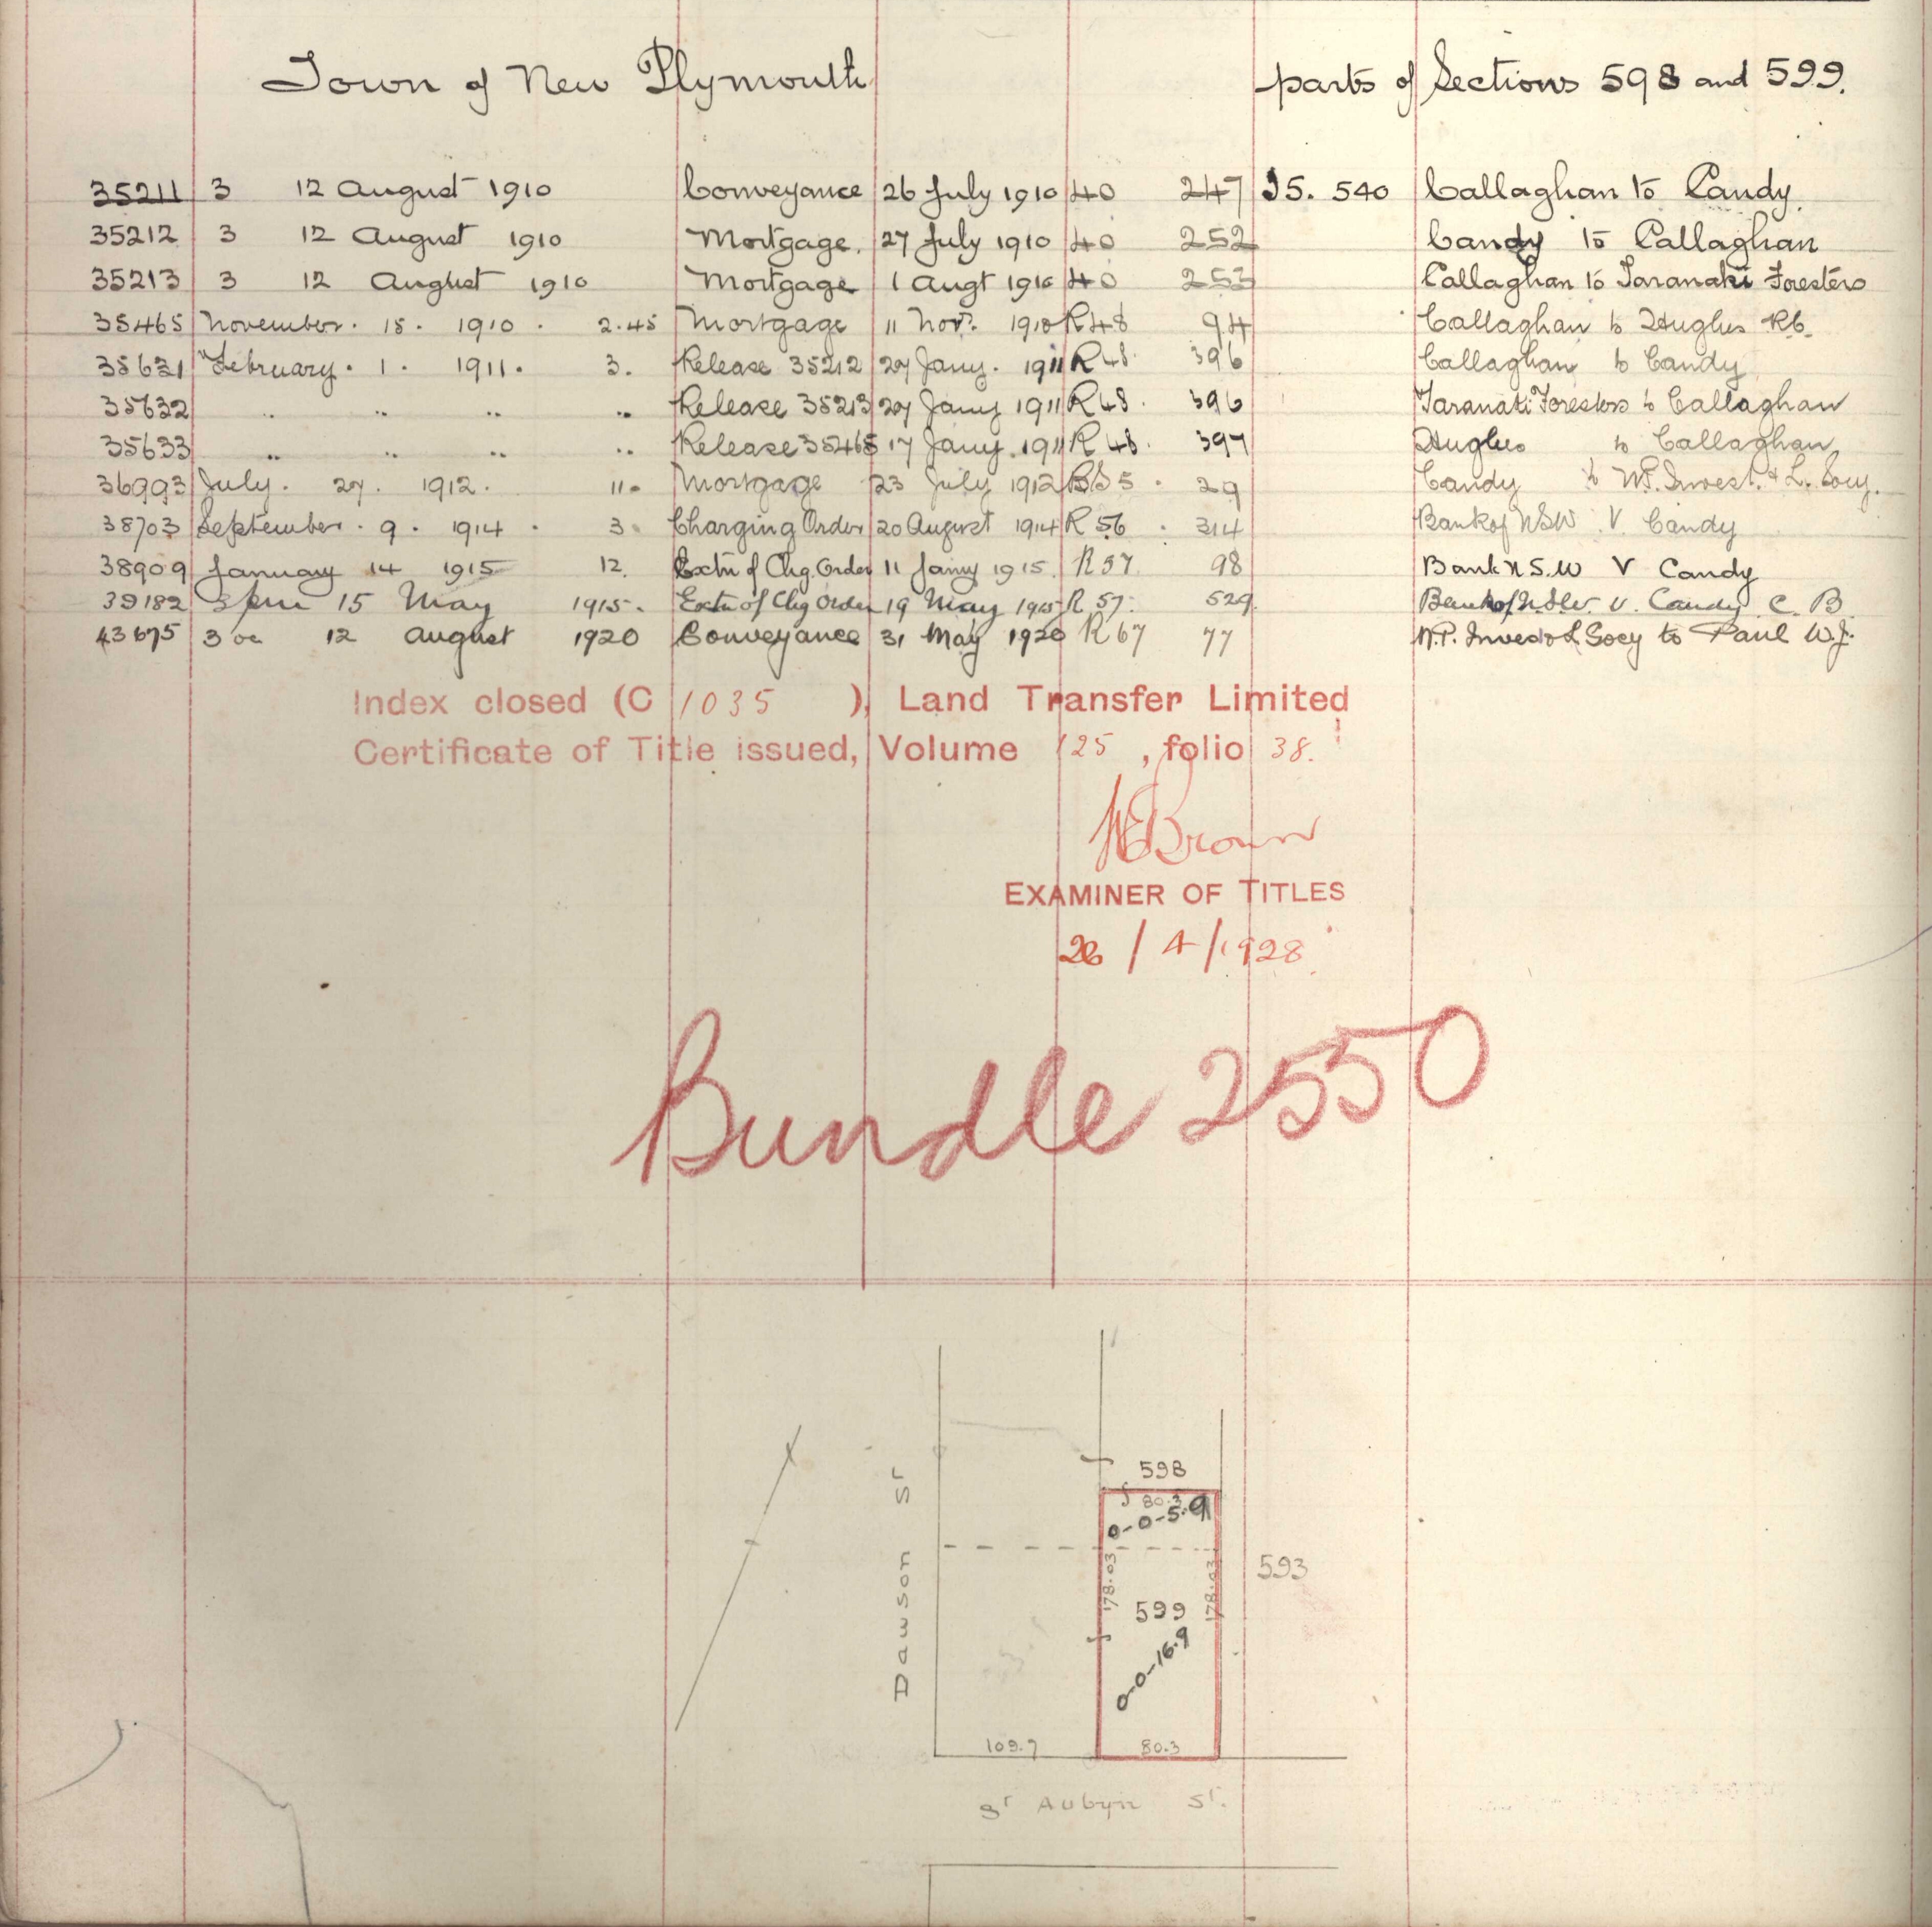 Town of New Plymouth parts of Sections 598 and 599.
35211 3 12 August 1910 Conveyance 26 July 1910 40 247 I5. 540 Callaghan to Candy.
35212 3 12 August 1910 Mortgage. 27 July 1910 40 252 Candy to Callaghan
35213 3 12 August 1910 Mortgage 1 Augt 1910 40 253 Callaghan to Taranaki Foresters
35465 November. 15. 1910. 2.45 Mortgage 11 Novr. 1910 R48 94 Callaghan to Hughes
35631 February. 1. 1911. 3. Release 35212 27 Jany. 1911 R48. 396 Callaghan to Candy
35632 .. .. .. .. Release 35213 27 Jany 1911 R48. 396 Taranaki Foresters to Callaghan
35633 .. .. .. .. Release 35465 17 Jany. 1911 R 48. 397 Hughes to Callaghan
36993 July. 27. 1912. 11. Mortgage 23 July 1912 29 Candy to Invest. & L. Socy.
38703 September. 9. 1914. 3. Charging Order 20 August 1914 R 56. 314 Bank of NSW. V. Candy
38909 January 14 1915 12. Extn of Chg. Order 11 Jany 1915. R 57. 98 Bank N.S.W V Candy
39182 3pm 15 May 1915. Extn of Chg Order 19 May 1915 R 57. 529. Bank of NSW. v. Candy C. B
43675 3 on 12 August 1920 Conveyance 31 May 1920 R 67 77 N.P. Invest & L Socy to Paul W.J.
Index closed (C 1035 ), Land Transfer Limited
Certificate of Title issued, Volume 125 , folio 38.
Brown
EXAMINER OF TITLES
26 / 4 / 1928.
Bundle 2550
598
80.3
0-0-5.9
Dawson St
178.03
178.03
593
599
0-0-16.9
109.7
80.3
St Aubyn St.